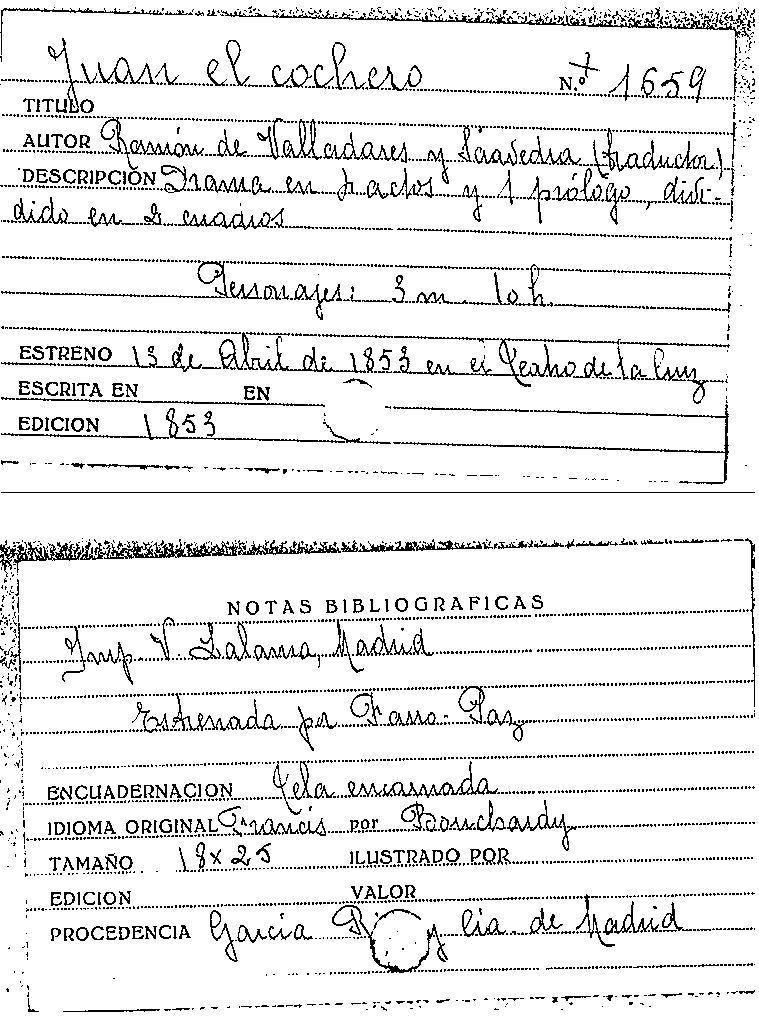 Juan el cochero N.º 1659
TITULO
AUTOR Ramón de Valladares y Saavedra (traductor)
DESCRIPCIÓN Drama en actos y 1 prólogo, divi-
dido en 2 cuadros
Personajes: 3 m. 10 h.
ESTRENO 13 de Abril de 1853 en el Teatro de la Cruz
ESCRITA EN EN
EDICION 1853
NOTAS BIBLIOGRAFICAS
Imp. V. Lalama, Madrid
Estrenada por Farro-Paz
ENCUADERNACION Tela encarnada
IDIOMA ORIGINAL Francés por Bouchardy
TAMAÑO 18 x 25 ILUSTRADO POR
EDICION VALOR
PROCEDENCIA García y Cia. de Madrid